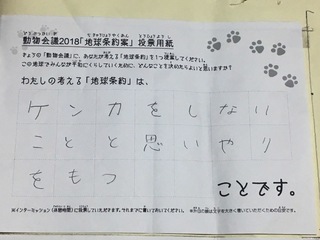 動物会議2018「地球条約案」投票用紙
きょうの「動物会議」に、あなたが考える「地球条約」を1つ提案してください。
この地球でみんなが平和にくらしていくために、どんなことを決めたらよいと思いますか?
わたしの考える「地球条約」は、
ケンカをしない
ことと思いやり
をもつ
ことです。
※インターミッション(休憩時間)に投票していただきます。それまでに書いておいてください。